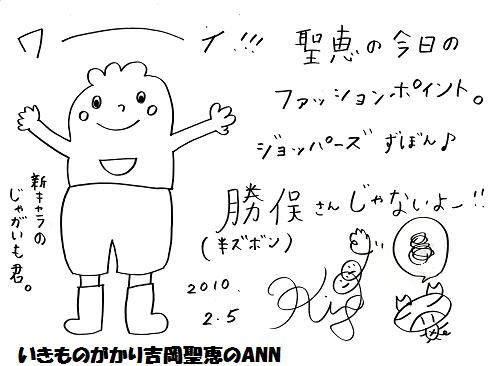 ワーイ!!!
聖恵の今日の
ファッションポイント。
ジョッパーズ ずぼん♪
勝俣さんじゃないよー!!
(半ズボン)
新キャラの
じゃがいも君。
2010.
2.5
いきものがかり吉岡聖恵のANN